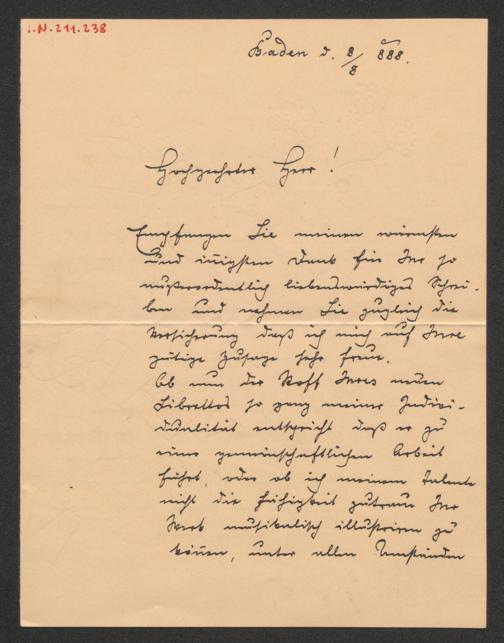 I.N. 211.238
Baden d. 8/8 888.
Hochgeehrter Herr!
Empfangen Sie meinen wärmsten
und innigsten Dank für Ihr so
außerordentlich liebenswürdiges Schrei-
ben und nehmen Sie zugleich die
Versicherung daß ich mich auf Ihre
gütige Zusage sehr freue.
Ob nun der Stoff Ihres neuen
Librettos so ganz meiner Indivi-
dualität entspricht daß es zu
einer gemeinschaftlichen Arbeit
führt, oder ob ich meinem Talente
nicht die Fähigkeit zutraue Ihr
Werk musikalisch illustriren zu
können, unter allen Umständen